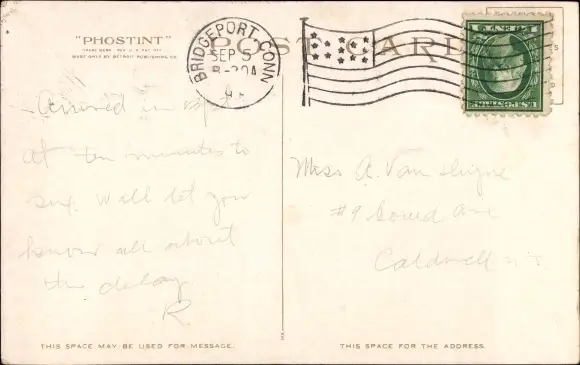 "PHOSTINT"
MADE ONLY BY DETROIT PUBLISHING CO.
POST CARD
BRIDGEPORT, CONN.
SEP 5
8-30A
U.S. POSTAGE
Arrived in
at ten minutes to
six. Will let you
know all about
the delay
R
Miss A. Van
#9 Gould Ave
Caldwell N J
THIS SPACE MAY BE USED FOR MESSAGE.
THIS SPACE FOR THE ADDRESS.